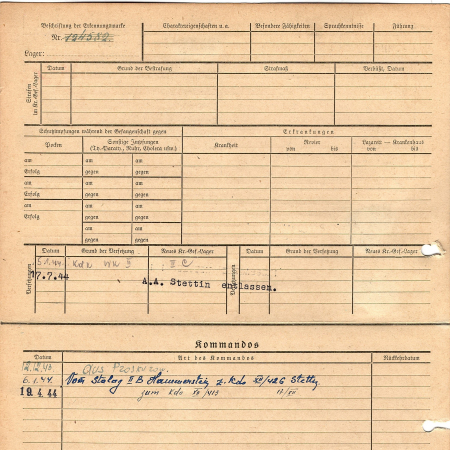 Beschriftung der Erkennungsmarke
Nr.
Lager:
Charaktereigenschaften u.a.
Besondere Fähigkeiten
Sprachkenntnisse
Führung
Strafen im Kr.-Gef.-Lager
Datum
Grund der Bestrafung
Strafmaß
Verbüßt, Datum
Schutzimpfungen während der Gefangenschaft gegen
Erkrankungen
Pocken
Sonstige Impfungen
(Ty.-Paraty., Ruhr, Cholera usw.)
Krankheit
Revier
von bis
Lazarett — Krankenhaus
von bis
am am am
Erfolg gegen gegen
am am am
Erfolg gegen gegen
am am am
Erfolg gegen gegen
am am
gegen gegen
Versetzungen
Datum
Grund der Versetzung
Neues Kr.-Gef.-Lager
Versetzungen
Datum
Grund der Versetzung
Neues Kr.-Gef.-Lager
5.1.44. II B
17.7.44 A.A. Stettin entlassen.
Kommandos
Datum
Art des Kommandos
Rückkehrdatum
aus
6.1.44. Vom Stalag II B Hammerstein z. Kdo XII/426 Stettin
19.4.44 zum Kdo